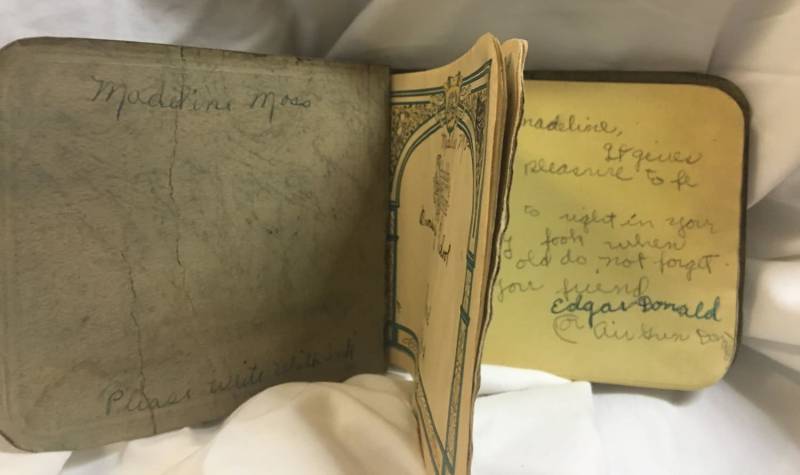 Madeline Moss
Please Write With ink
madeline,
It gives
pleasure to
to right in your
when
old do not forget.
your friend
Edgar Donald
(or Air Gun Don)